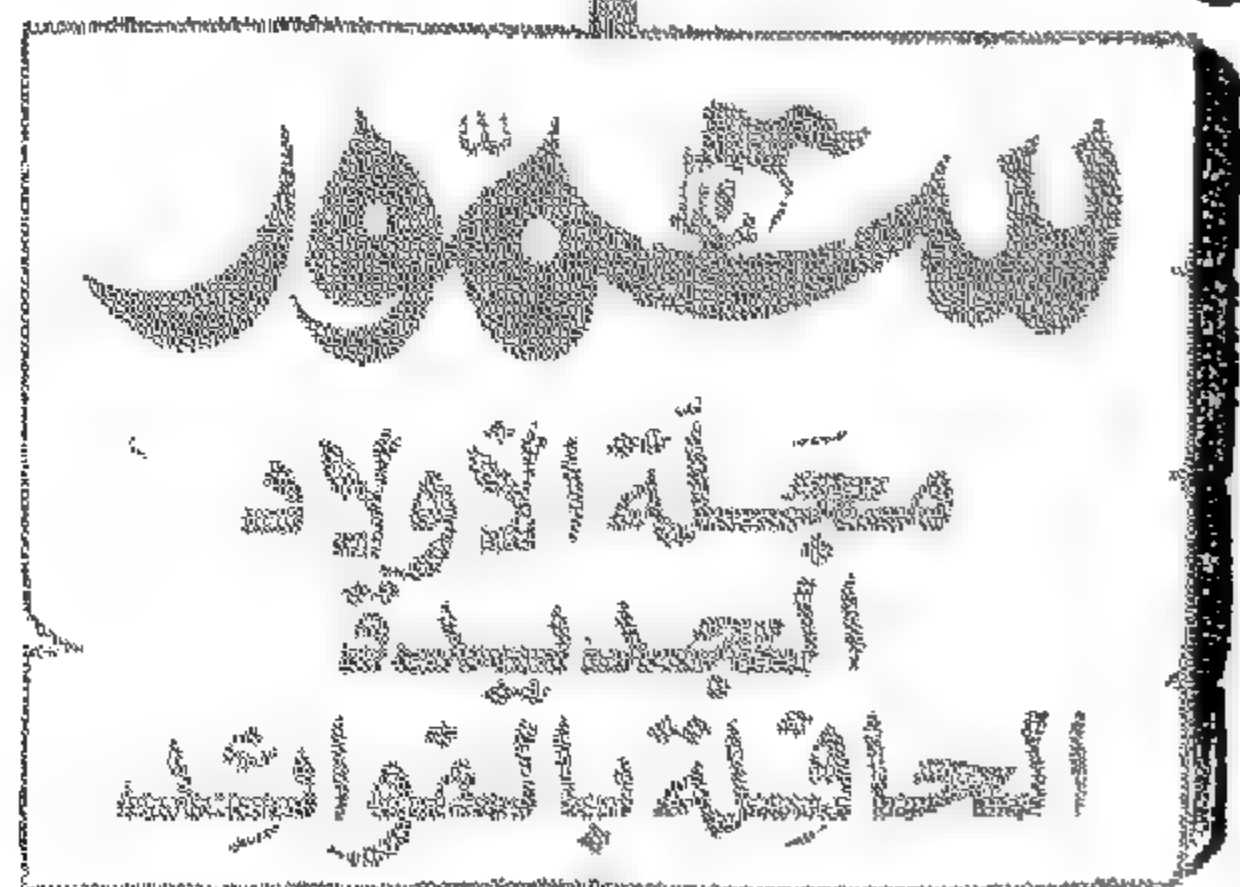 سمّور
مَجَلّة الأولاد
الجديدة
الحافِلة بالفوائِد